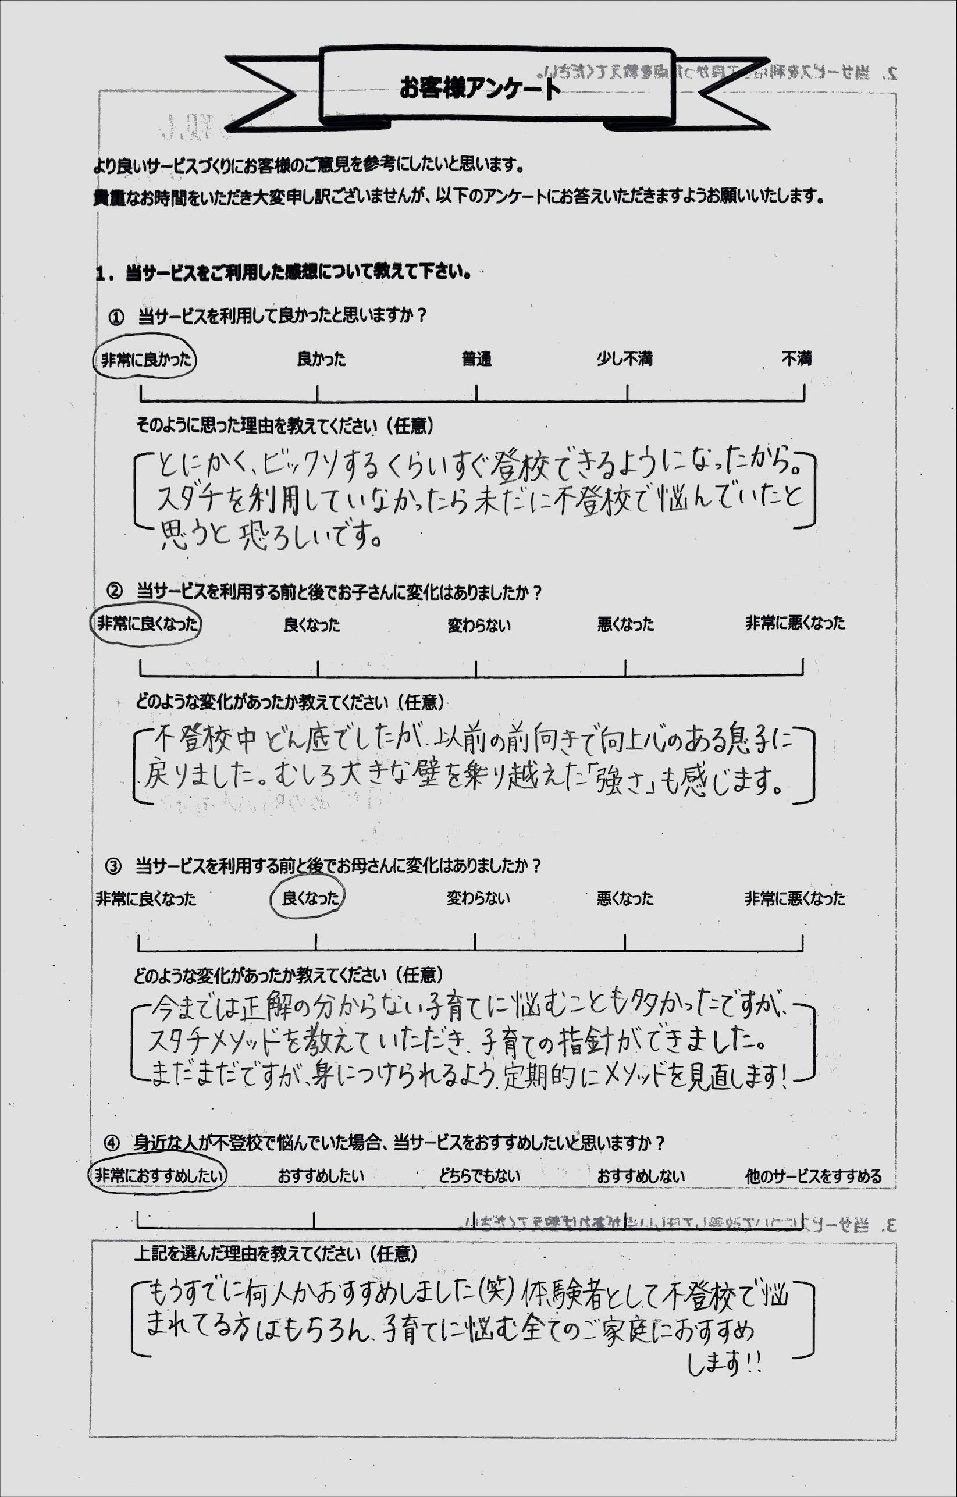 お客様アンケート
より良いサービスづくりにお客様のご意見を参考にしたいと思います。
貴重なお時間をいただき大変申し訳ございませんが、以下のアンケートにお答えいただきますようお願いいたします。
1．当サービスをご利用した感想について教えて下さい。
① 当サービスを利用して良かったと思いますか？
非常に良かった 良かった 普通 少し不満 不満
そのように思った理由を教えてください（任意）
とにかく、ビックリするくらいすぐ登校できるようになったから。
スダチを利用していなかったら未だに不登校で悩んでいたと
思うと恐ろしいです。
② 当サービスを利用する前と後でお子さんに変化はありましたか？
非常に良くなった 良くなった 変わらない 悪くなった 非常に悪くなった
どのような変化があったか教えてください（任意）
不登校中どん底でしたが、以前の前向きで向上心のある息子に
戻りました。むしろ大きな壁を乗り越えた「強さ」も感じます。
③ 当サービスを利用する前と後でお母さんに変化はありましたか？
非常に良くなった 良くなった 変わらない 悪くなった 非常に悪くなった
どのような変化があったか教えてください（任意）
今までは正解の分からない子育てに悩むことも多かったですが、
スタチメソッドを教えていただき、子育ての指針ができました。
まだまだですが、身につけられるよう、定期的にメソッドを見直します！
④ 身近な人が不登校で悩んでいた場合、当サービスをおすすめしたいと思いますか？
非常におすすめしたい おすすめしたい どちらでもない おすすめしない 他のサービスをすすめる
上記を選んだ理由を教えてください（任意）
もうすでに何人かおすすめしました（笑）体験者として不登校で悩
まれてる方はもちろん、子育てに悩む全てのご家庭におすすめ
します!!
2．当サービスを利用して良かった点を教えてください。
3．当サービスについて改善してほしい点があれば教えてください。